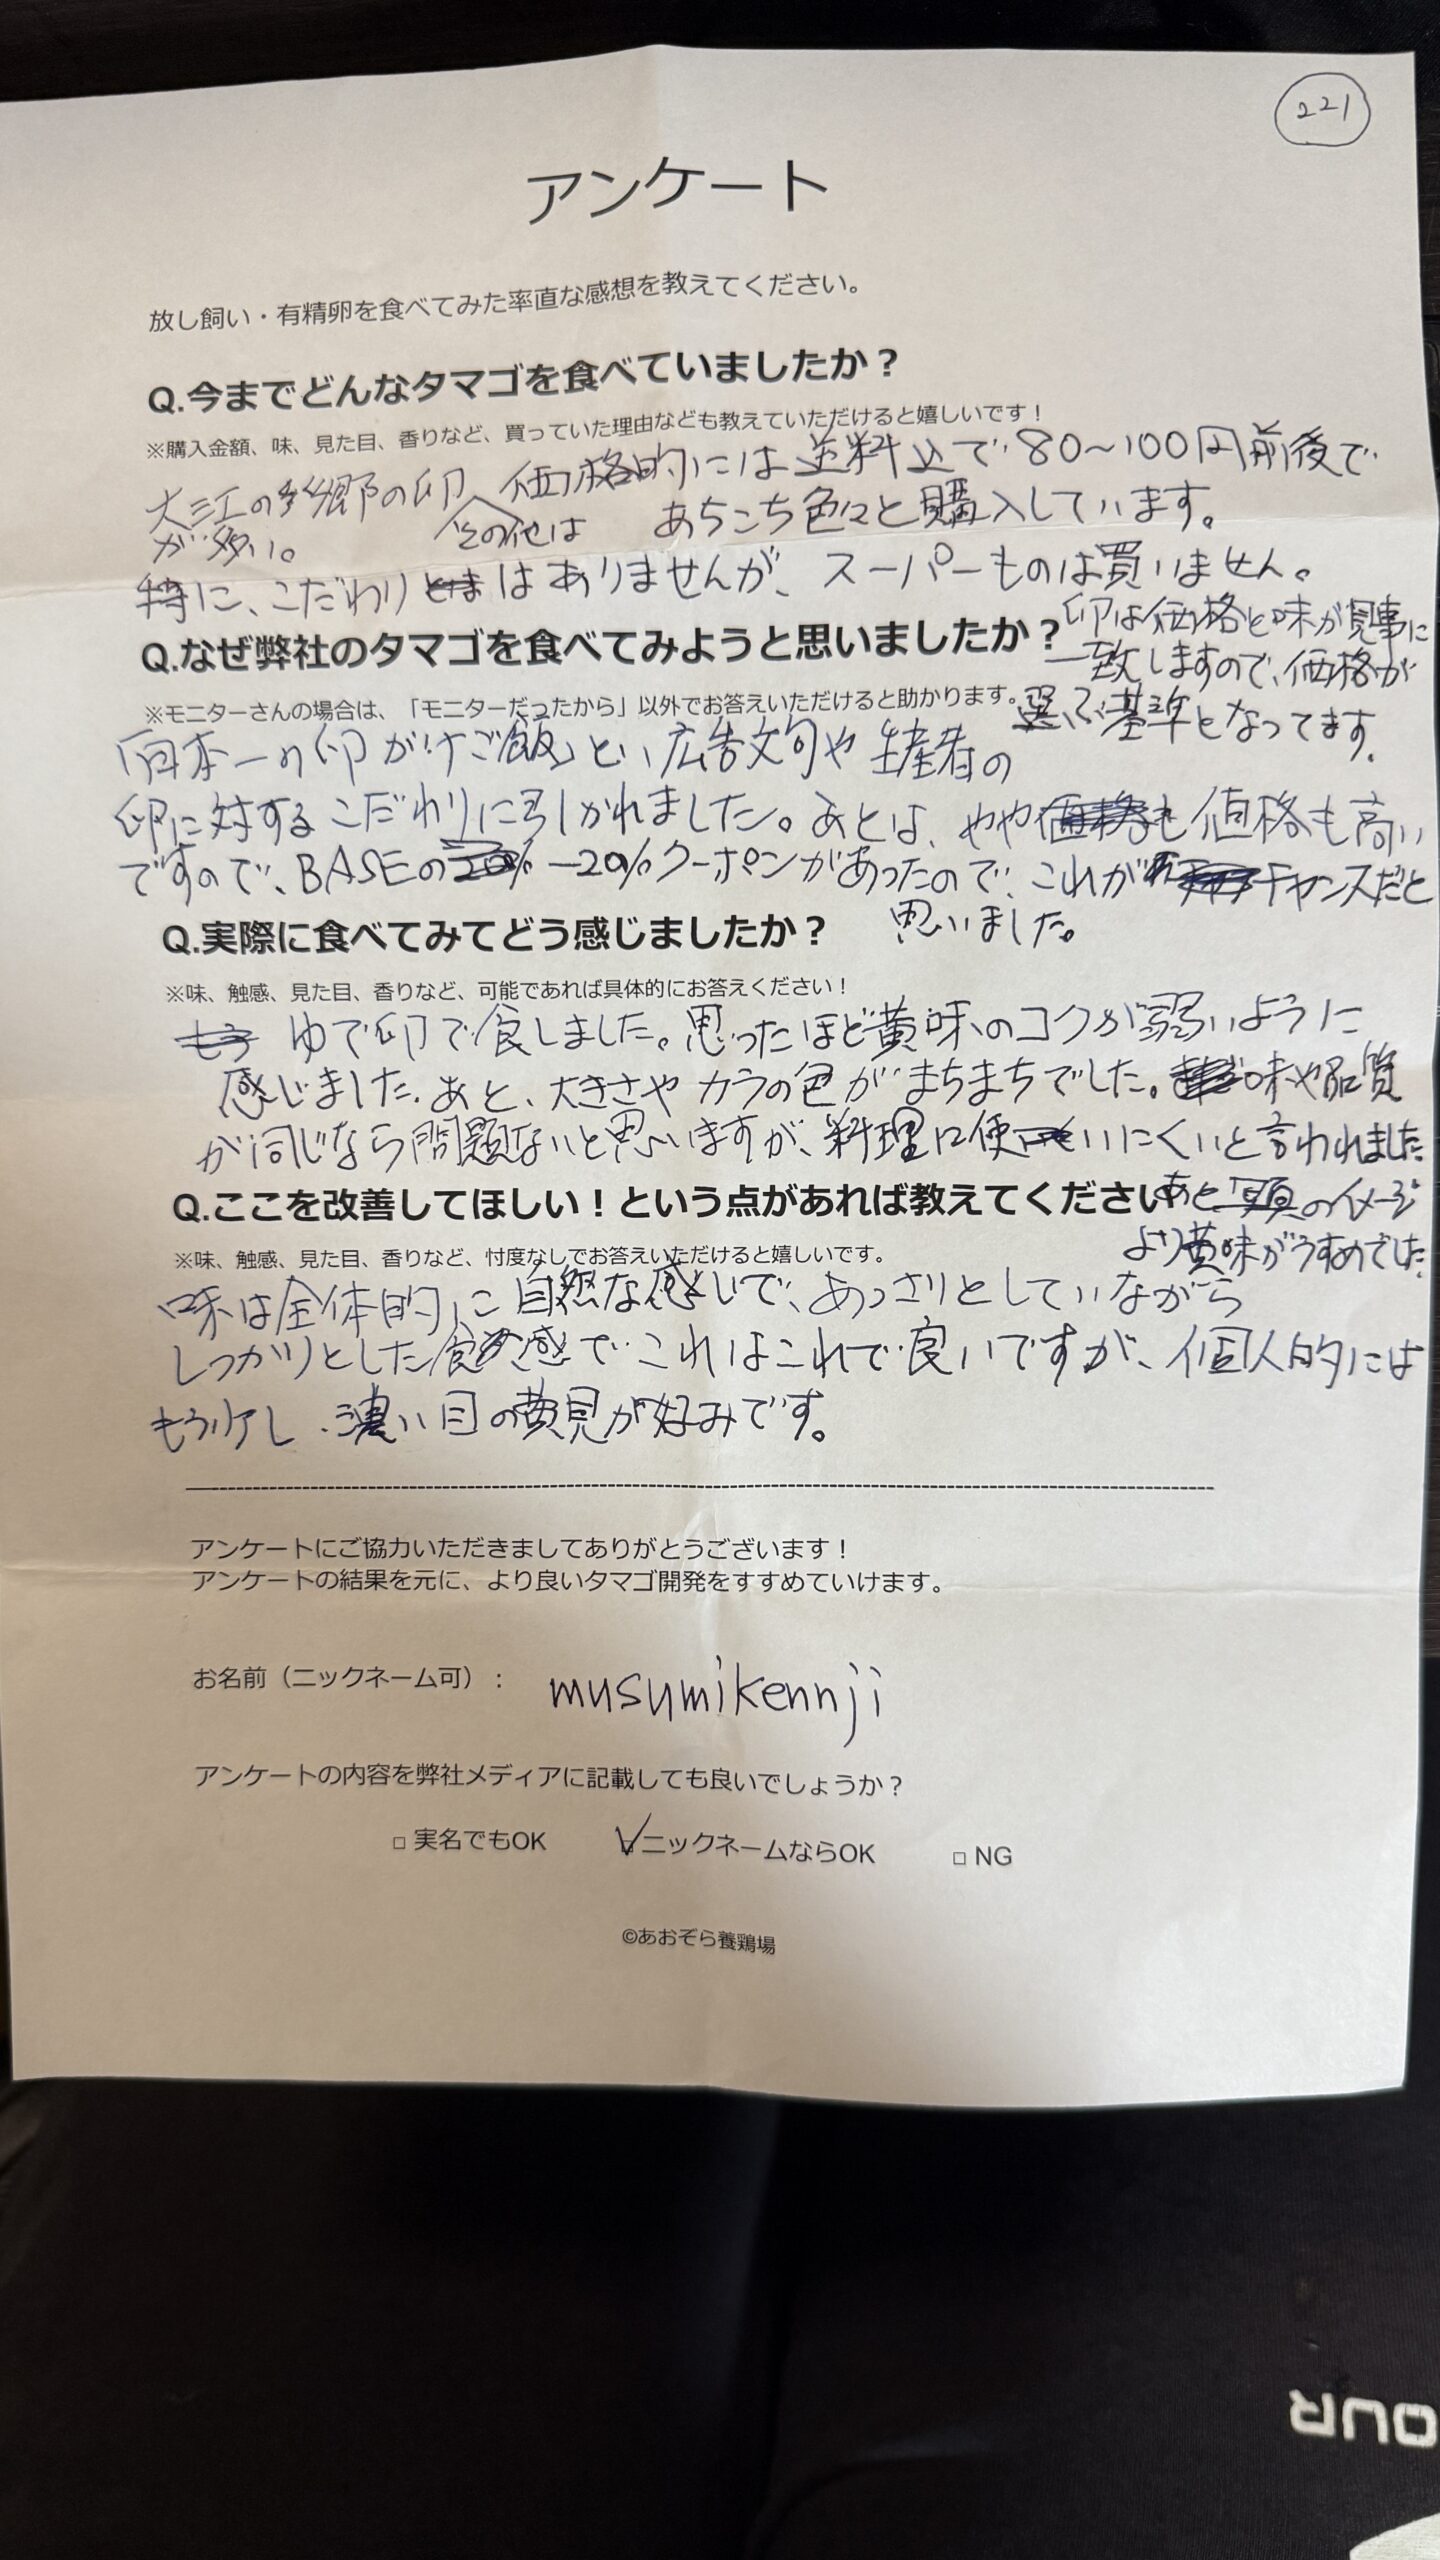 221
アンケート
放し飼い・有精卵を食べてみた率直な感想を教えてください。
Q.今までどんなタマゴを食べていましたか？
※購入金額、味、見た目、香りなど、買っていた理由なども教えていただけると嬉しいです！
大江の郷の卵 価格的には送料込で80～100円前後で
が多い。 その他は あちこち色々と購入しています。
特に、こだわりはありませんが、スーパーものは買いません。
卵は価格と味が見事に
一致しますので、価格が
選ぶ基準となってます。
Q.なぜ弊社のタマゴを食べてみようと思いましたか？
※モニターさんの場合は、「モニターだったから」以外でお答えいただけると助かります。
「日本一の卵がけご飯」とい広告文句や生産者の
卵に対するこだわりに引かれました。あとは、やや値格も高い
ですので、BASEの－20%クーポンがあったので、これがチャンスだと
思いました。
Q.実際に食べてみてどう感じましたか？
※味、触感、見た目、香りなど、可能であれば具体的にお答えください！
ゆで卵で食しました。思ったほど黄味のコクが弱いように
感じました。あと、大きさやカラの色がまちまちでした。味や品質
が同じなら問題ないと思いますが、料理に使いにくいと言われました。
あと、写真のイメージ
より黄味がうすめでした。
Q.ここを改善してほしい！という点があれば教えてください
※味、触感、見た目、香りなど、忖度なしでお答えいただけると嬉しいです。
味は全体的に自然な感じで、あっさりとしていながら
しっかりとした食感でこれはこれで良いですが、個人的には
もう少し、濃い目の黄見が好みです。
アンケートにご協力いただきましてありがとうございます！
アンケートの結果を元に、より良いタマゴ開発をすすめていけます。
お名前（ニックネーム可）： musumikennji
アンケートの内容を弊社メディアに記載しても良いでしょうか？
□ 実名でもOK ☑ニックネームならOK □ NG
©あおぞら養鶏場
OUR